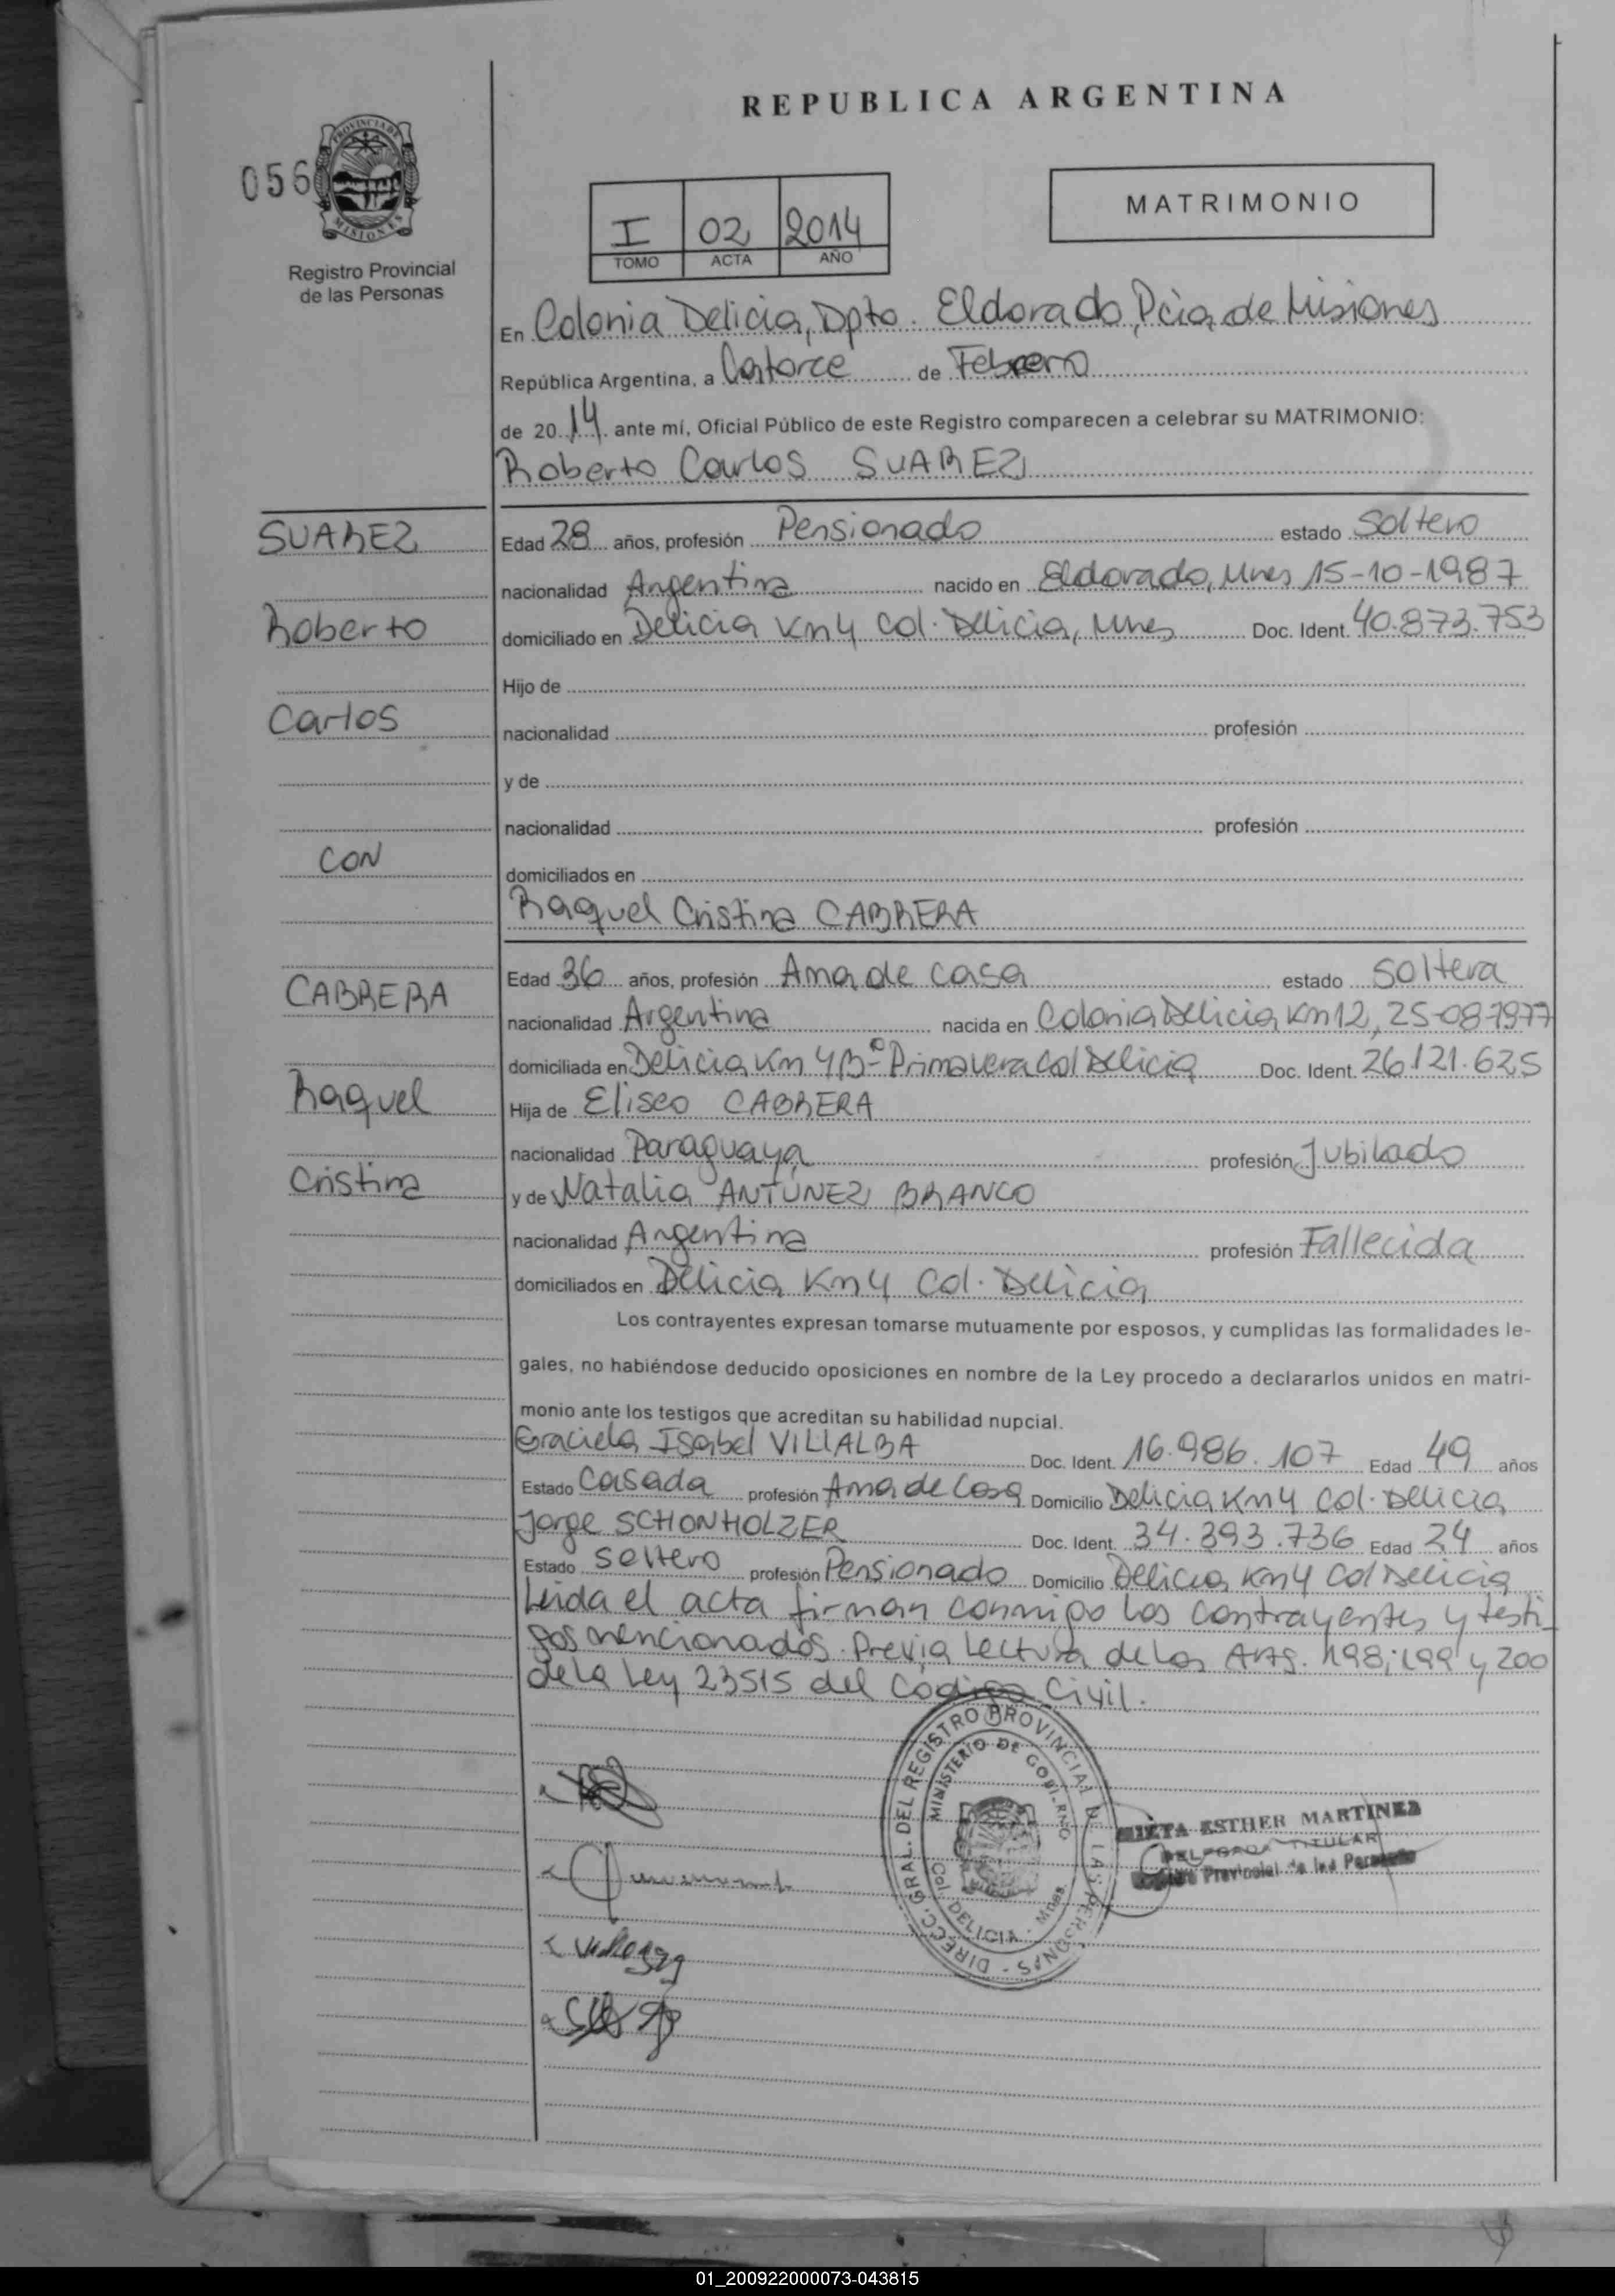 REPUBLICA ARGENTINA
056
PROVINCIA DE
MISIONES
Registro Provincial
de las Personas
I 02 2014
TOMO ACTA AÑO
MATRIMONIO
En Colonia Delicia, Dpto. Eldorado, Pcia de Misiones
República Argentina, a Catorce de Febrero
de 20 14 ante mí, Oficial Público de este Registro comparecen a celebrar su MATRIMONIO:
Roberto Carlos SUAREZ
SUAREZ
Roberto
Carlos
CON
CABRERA
Raquel
Cristina
Edad 28 años, profesión Pensionado estado Soltero
nacionalidad Argentina nacido en Eldorado, Mnes 15-10-1987
domiciliado en Delicia Km 4 Col. Delicia, Mnes Doc. Ident. 40.873.753
Hijo de
nacionalidad profesión
y de
nacionalidad profesión
domiciliados en
Raquel Cristina CABRERA
Edad 36 años, profesión Ama de casa estado soltera
nacionalidad Argentina nacida en Colonia Delicia Km 12, 25-08-1977
domiciliada en Delicia Km 4 Bº Primavera Col Delicia Doc. Ident. 26.121.625
Hija de Eliseo CABRERA
nacionalidad Paraguaya profesión Jubilado
y de Natalia ANTÚNEZ BRANCO
nacionalidad Argentina profesión Fallecida
domiciliados en Delicia Km 4 Col. Delicia
Los contrayentes expresan tomarse mutuamente por esposos, y cumplidas las formalidades le-
gales, no habiéndose deducido oposiciones en nombre de la Ley procedo a declararlos unidos en matri-
monio ante los testigos que acreditan su habilidad nupcial.
Graciela Isabel VILLALBA Doc. Ident. 16.986.107 Edad 49 años
Estado Casada profesión Ama de Casa Domicilio Delicia Km 4 Col. Delicia
Jorge SCHONHOLZER Doc. Ident. 34.393.736 Edad 24 años
Estado soltero profesión Pensionado Domicilio Delicia Km 4 Col Delicia
Leida el acta firman conmigo los contrayentes y testi_
gos mencionados. Previa Lectura de los Arts. 198; 199 y 200
de la Ley 23515 del Código Civil.
DIRECC. GRAL. DEL REGISTRO PROVINCIAL DE LAS PERSONAS
MINISTERIO DE GOBIERNO
COL. DELICIA - Mnes.
ESTHER MARTINEZ
DELEGADA TITULAR
Registro Provincial de las Personas
01_200922000073-043815